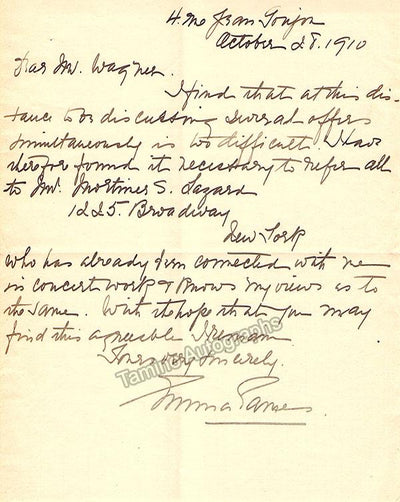 4. rue Jean Goujon
October 28. 1910
Dear Mr. Wagner.
I find that at this dis-
tance to be discussing several offers
simultaneously is too difficult. I have
therefore found it necessary to refer all
to Mr. Mortimer S.
1225. Broadway
New York
who has already been connected with me
in concert work & knows my views as to
the same. With the hope that you may
find this agreeable I remain
Yours very sincerely.
Emma Eames.
Tamino Autographs